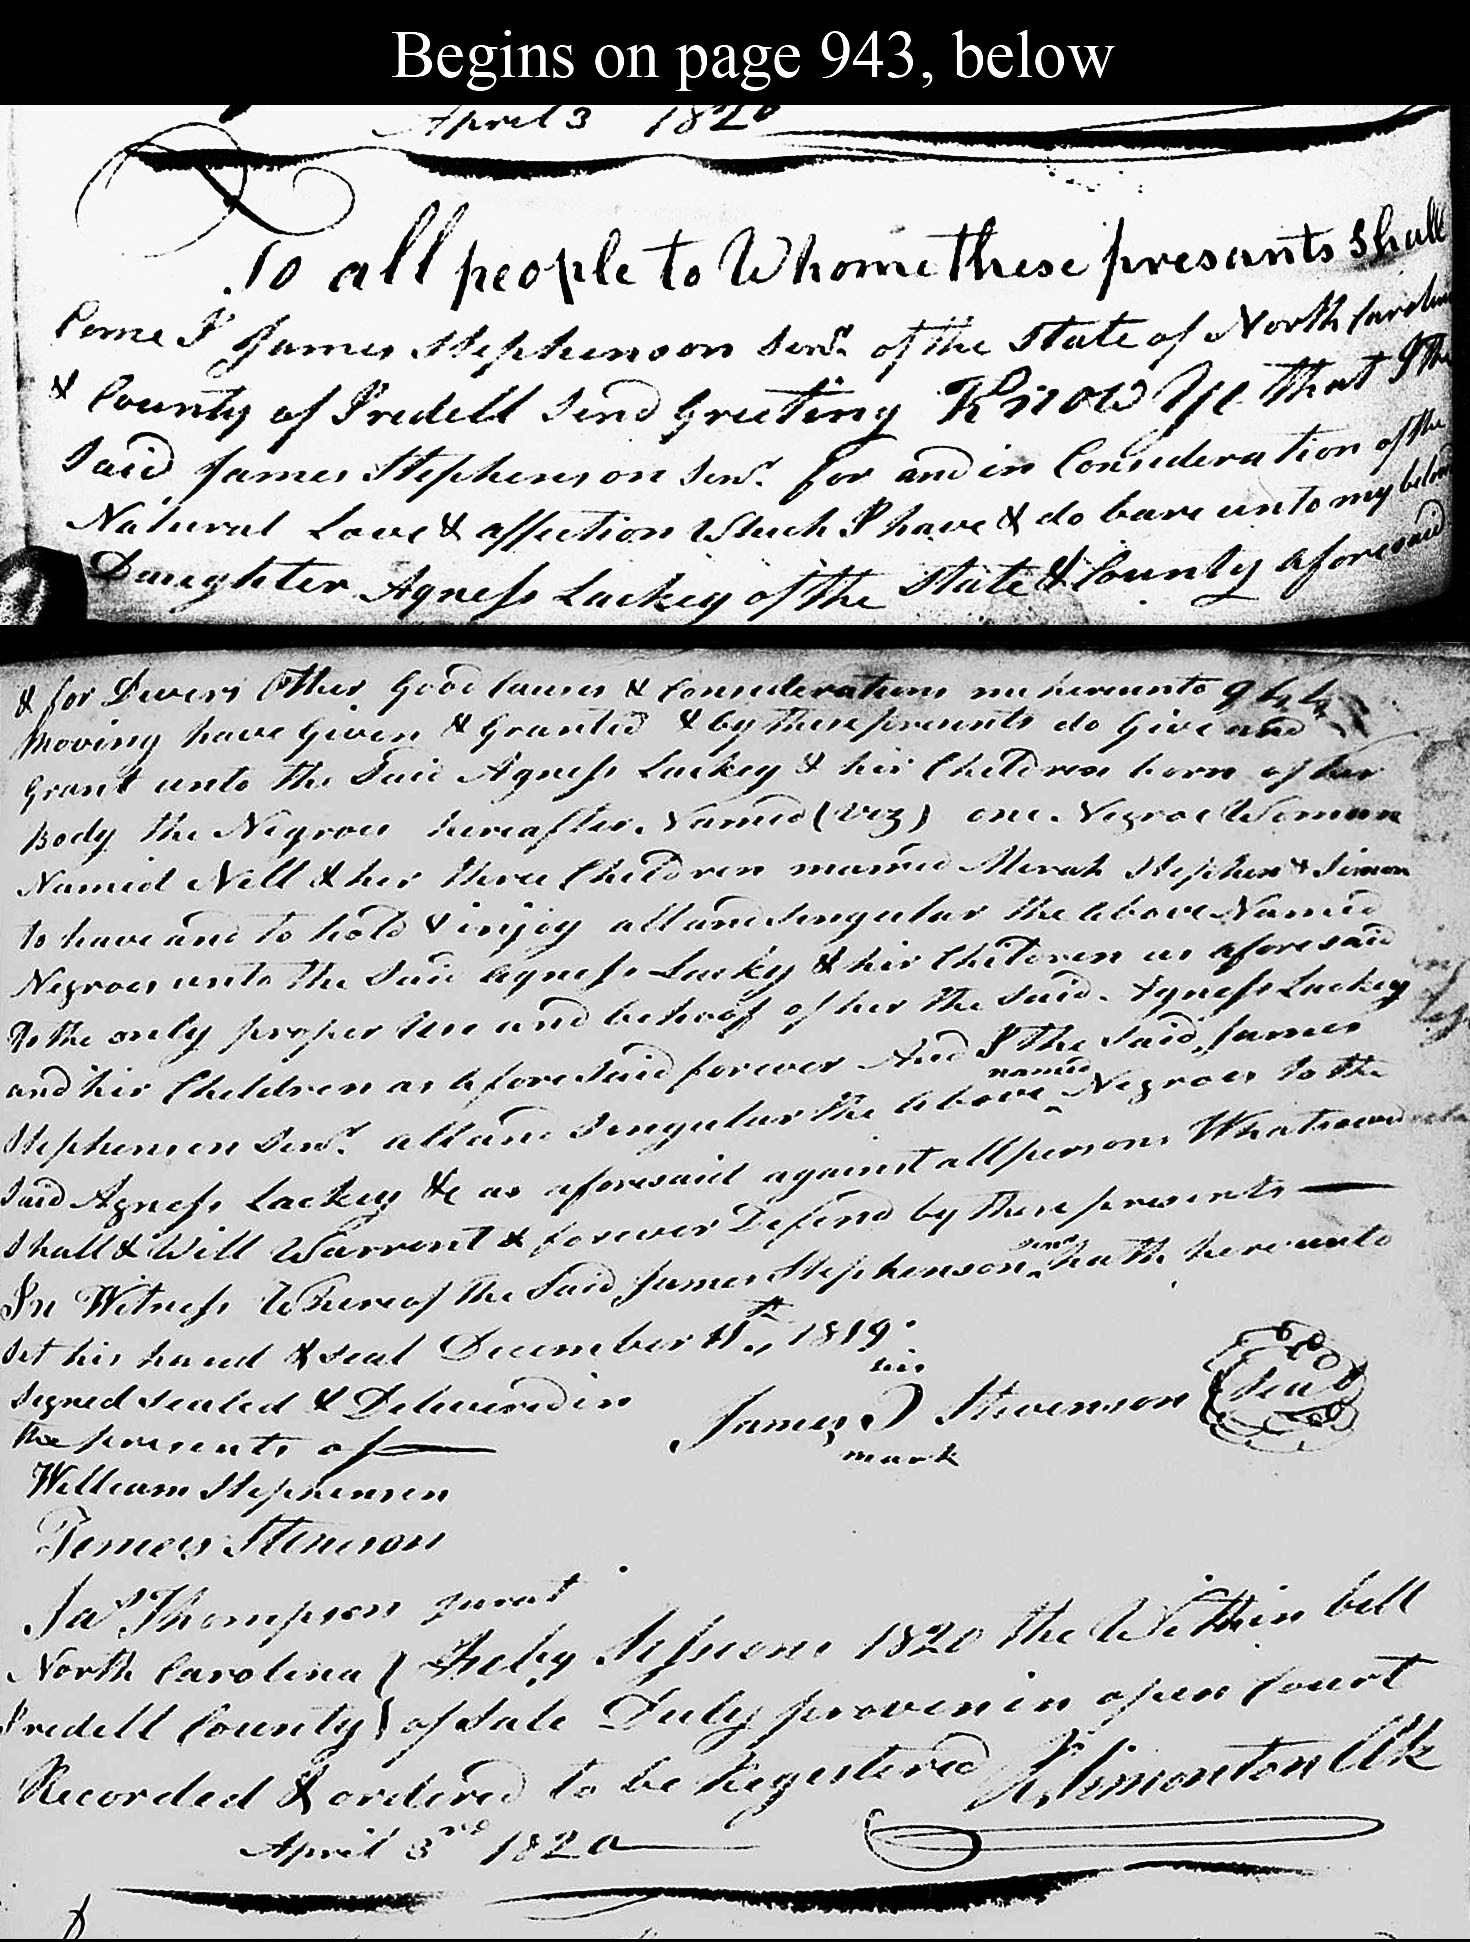 Begins on page 943, below
April 3 1820
To all people to Whome these presants shall
Come I James Stephenson Senr. of the State of North Carolina
& County of Iredell Send Greeting Know Ye that I the
Said James Stephenson Senr. for and in Consideration of the
Natural Love & affection Which I have & do bare unto my beloved
Daughter Agness Lackey of the State & County aforesaid
& for Divers Other Good Causes & Considerations me hereunto 944
Moving have Given & Granted & by these presents do Give and
Grant unto the Said Agness Lackey & hir Children born of her
Body the Negroes hereafter Named (viz) one Negroe Woman
Named Nell & her three Children named Merah Stephen & Simon
to have and to hold & injoy all and Singular the above Named
Negroes unto the Said Agness Lackey & hir Children as aforesaid
To the only proper use and behoof of her the Said Agness Lackey
and hir Children as aforesaid forever And I the Said James
Stephenson Senr. all and Singular the above named Negroes to the
Said Agness Lackey &c as aforesaid against all persons Whatsoever
Shall & Will Warrent & forever Defend by these presents
In Witness Whereof the Said James Stephenson Senr hath hereunto
Set his hand & seal December 11th, 1819
his
Signed Sealed & Delivered in James J Stevenson Seal
the presents of mark
William Stephenson
James Stenson
Jas Thompson Jurat
North Carolina } Feby Sessions 1820 the Within bill
Iredell County } of Sale Duly proven in open Court
Recorded & ordered to be Registered R. Simonton Clk
April 3rd 1820